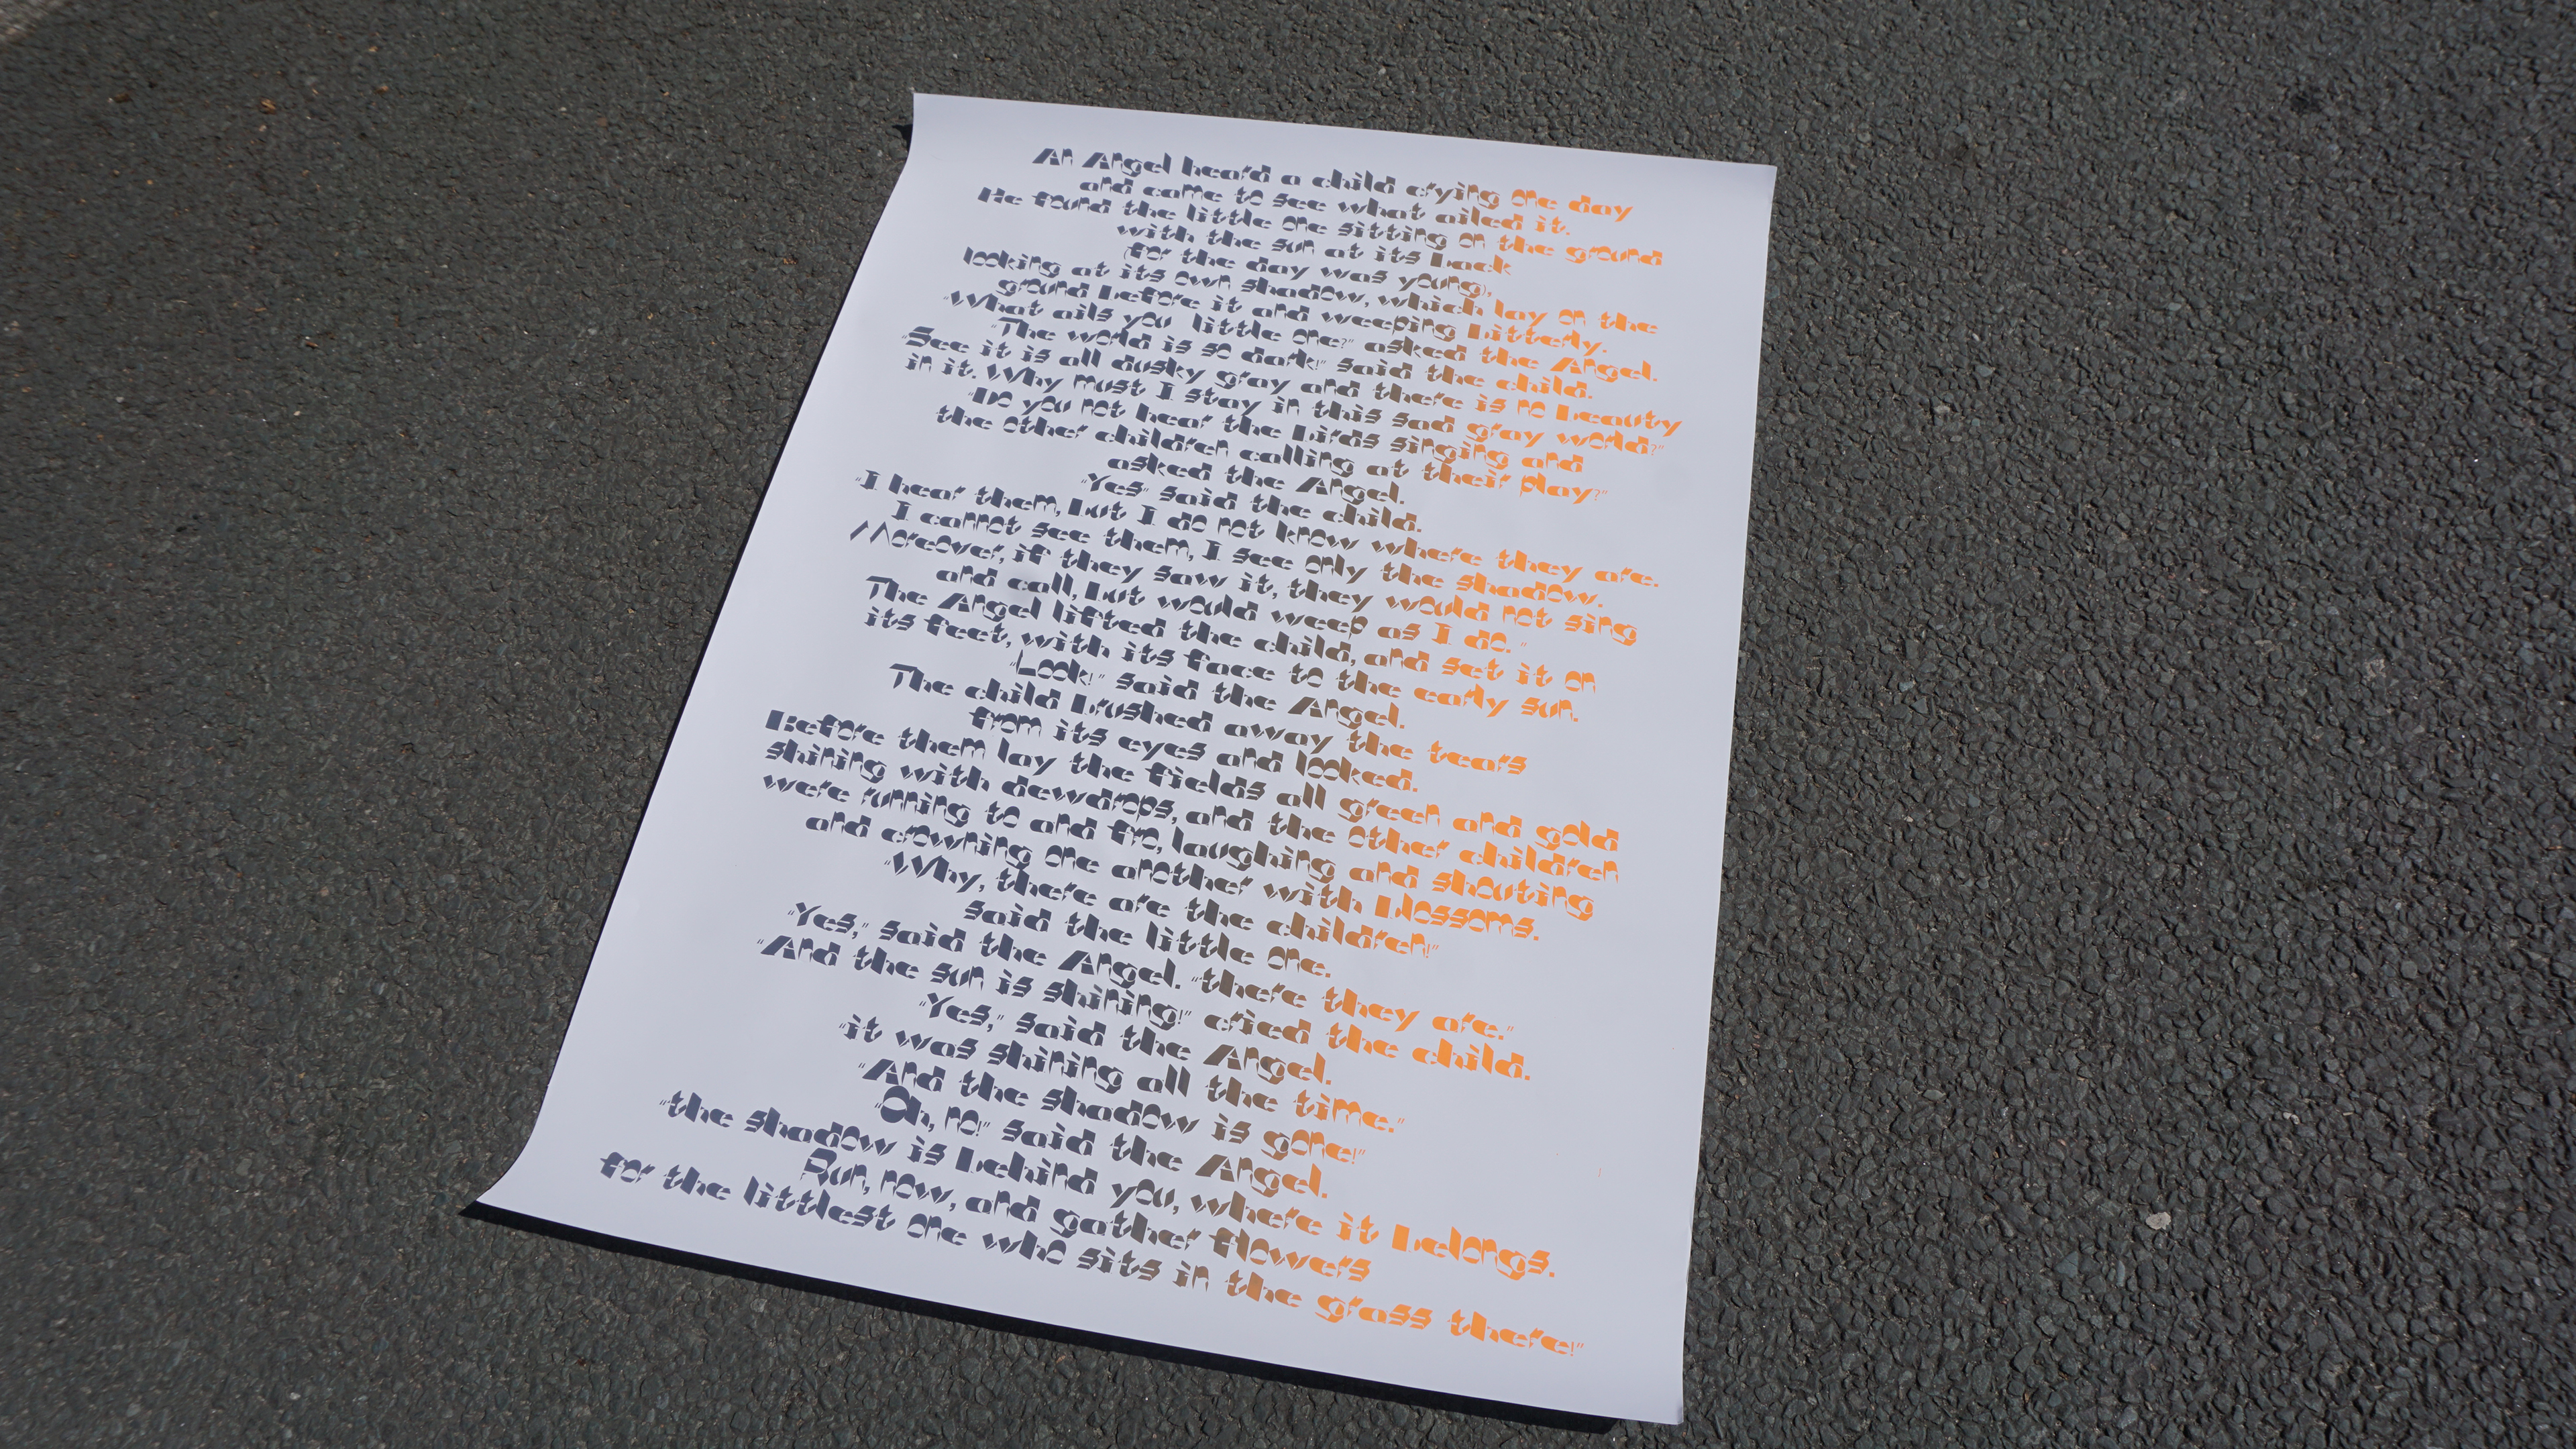 An Angel heard a child crying one day
and came to see what ailed it.
He found the little one sitting on the ground
with the sun at its back
(for the day was young),
looking at its own shadow, which lay on the
ground before it and weeping bitterly.
"What ails you little one?" asked the Angel.
"The world is so dark!" said the child.
"See it is all dusky gray and there is no beauty
in it. Why must I stay in this sad gray world?"
"Do you not hear the birds singing and
the other children calling at their play?"
asked the Angel.
"Yes" said the child.
"I hear them, but I do not know where they are.
I cannot see them, I see only the shadow.
Moreover, if they saw it, they would not sing
and call, but would weep as I do."
The Angel lifted the child, and set it on
its feet, with its face to the early sun.
"Look!" said the Angel.
The child brushed away the tears
from its eyes and looked.
Before them lay the fields all green and gold
shining with dewdrops, and the other children
were running to and fro, laughing and shouting
and crowning one another with blossoms.
"Why, there are the children!"
said the little one.
"Yes," said the Angel. "there they are."
"And the sun is shining!" cried the child.
"Yes," said the Angel.
"it was shining all the time."
"And the shadow is gone!"
"Oh, no!" said the Angel.
"the shadow is behind you, where it belongs.
Run, now, and gather flowers
for the littlest one who sits in the grass there!"